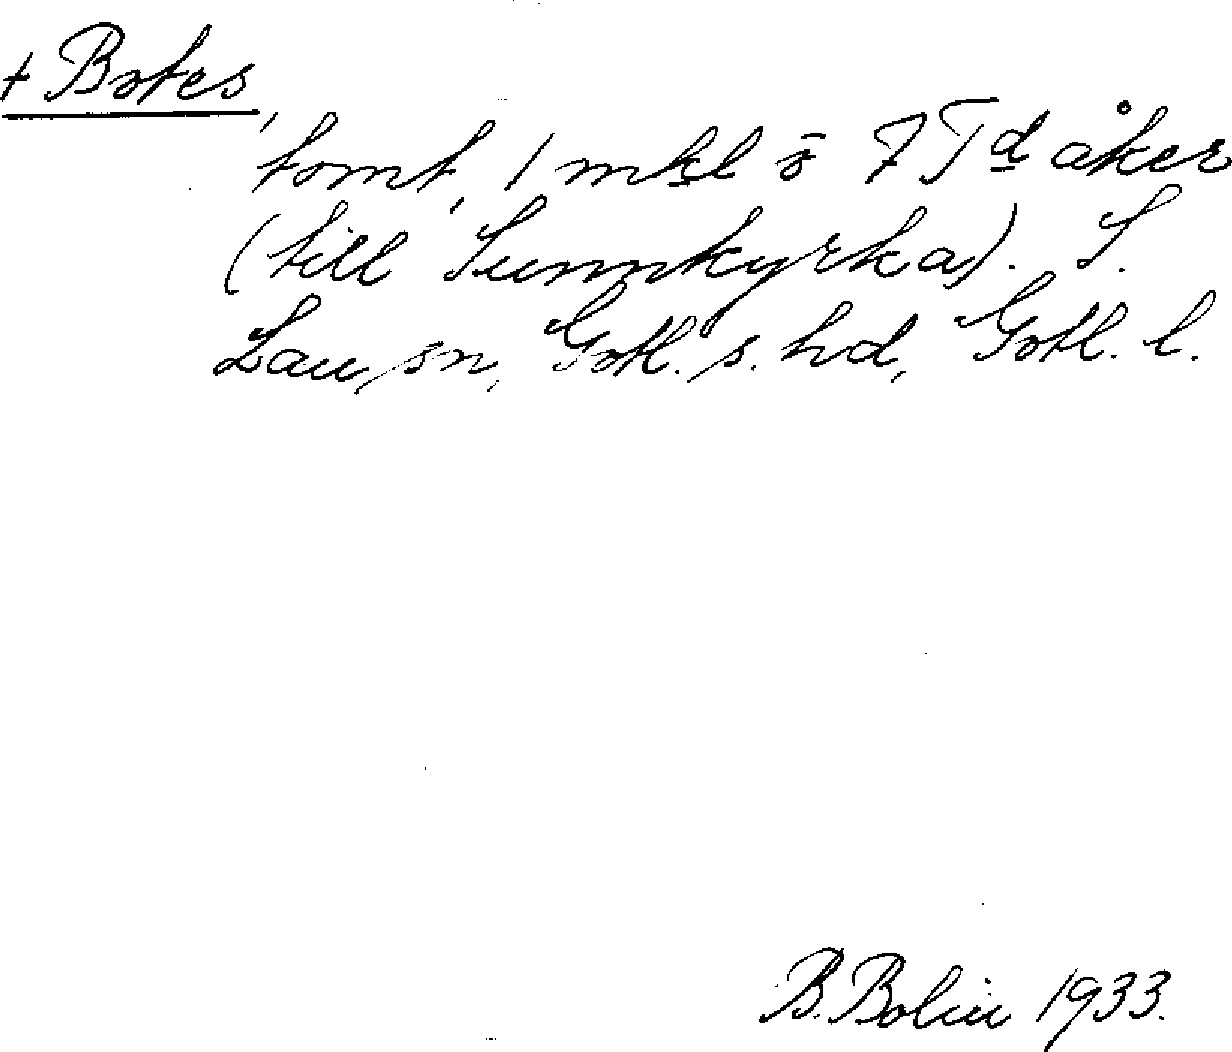 + Botes,
tomt, 1 mkl o 7 Td åker
(till Sunnkyrka). S.
Lau sn, Gotl. s. hd, Gotl. l.
B. Bolin 1933.